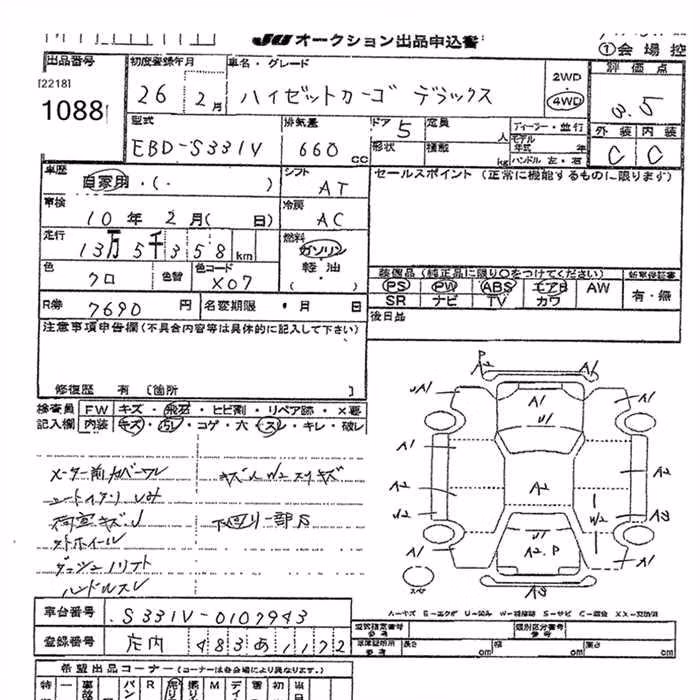 JU オークション出品申込書
①会場控
出品番号 初度登録年月 車名・グレード 評価点
[2218]
1088 26 2月 ハイゼットカーゴ デラックス 2WD 4WD 3.5
型式 排気量 ドア 5 定員 人 ディーラー・並行 外装 内装
EBD-S331V 660 cc 形状 積載 kg モデル年式 年 ハンドル 左・右 C C
車歴 自家用・(・ ) シフト AT セールスポイント (正常に機能するものに限ります)
車検 10年 2月( 日) 冷房 AC
走行 13万5千358km 燃料 ガソリン 軽油 ( )
色 クロ 色替 色コード X07 装備品 (純正品に限り○をつけてください) 新車保証書
PS PW ABS エアB AW 有・無
R券 7690円 名変期限 ・月 日 SR ナビ TV カワ
注意事項申告欄 (不具合内容等は具体的に記入して下さい) 後日品
修復歴 有 [箇所 ]
検査員 FW キズ・飛石・ヒビ割・リペア跡・×要
記入欄 内装 キズ・汚レ・コゲ・穴・スレ・キレ・破レ
P
A2 A1
UA1 A1 A1
U1
A1 A2 A2
U2 W2 A3
U1
A1 A2.P A1
スペア A3
下回り一部サ
ハンドルスレ
A-キズ E-エクボ U-凹み W-補修跡 S-サビ C-腐食 XX-交換済
車台番号 S331V-0107943
登録番号 庄内 483あ1172
型式指定番号 参考 類別区分番号 参考
長さ cm 幅 cm 高さ cm
希望出品コーナー (コーナーは各会場により異なります)